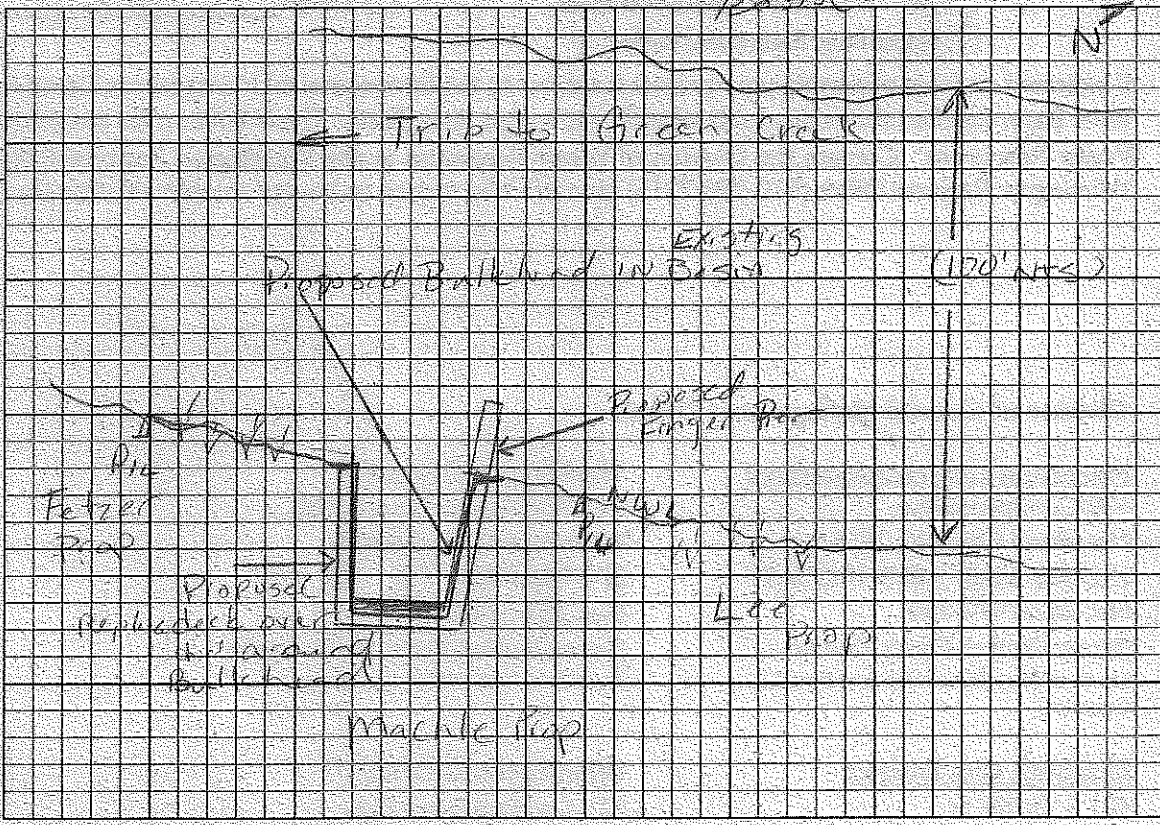 N
Trib to Green Creek
Existing
Proposed Bulkhead IN Basin
(170' NTS)
Proposed
Finger Pier
P/L
Fetzer
Prop
NWL
P/L
Proposed
deck over
around
Bulkhead
Lee
Prop
Prop